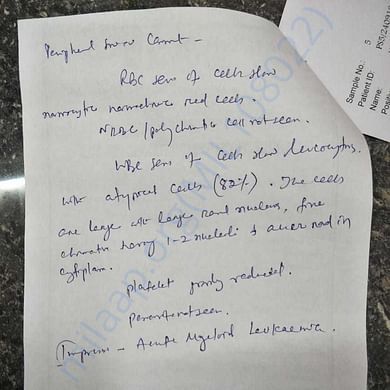 Peripheral Smear Comment -
RBC series of cells show
normocytic normochromic red cells.
NRBC/polychromatic cell not seen.
WBC series of cells show leucocytosis
with atypical cells (82%). The cells
are large with large round nucleus, fine
chromatin having 1-2 nucleoli & auer rod in
cytoplasm.
platelet reduced.
parasite not seen.
Impression - Acute Myeloid Leukaemia.
Sample No. 3
Patient ID:
Name:
milaap.org